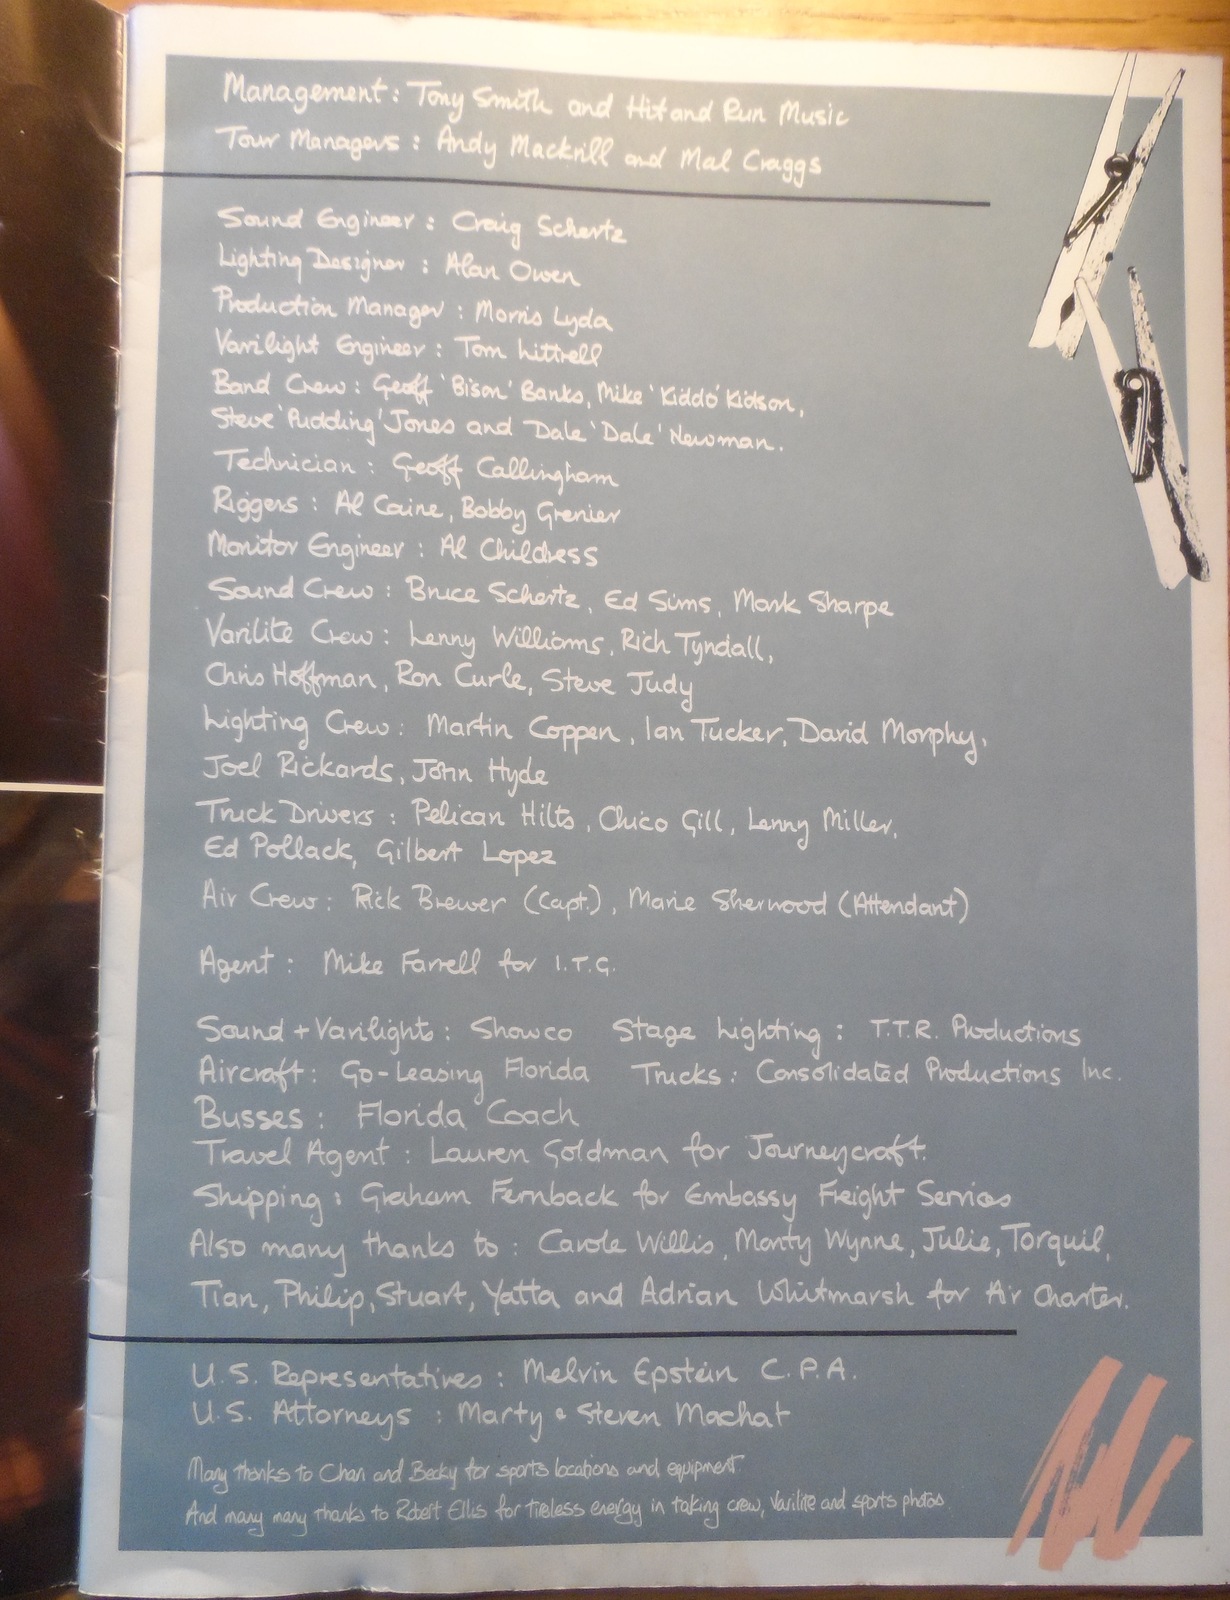 Management: Tony Smith and Hit and Run Music
Tour Managers : Andy Mackrill and Mal Craggs
Sound Engineer : Craig Schertz
Lighting Designer : Alan Owen
Production Manager : Morris Lyda
Varilight Engineer : Tom Littrell
Band Crew : Geoff 'Bison' Banks, Mike 'Kiddo' Kidson,
Steve 'Pudding' Jones and Dale 'Dale' Newman.
Technician : Geoff Callingham
Riggers : Al Caine, Bobby Grenier
Monitor Engineer : Al Childress
Sound Crew : Bruce Schertz, Ed Sims, Mark Sharpe
Varilite Crew : Lenny Williams, Rich Tyndall,
Chris Hoffman, Ron Curle, Steve Judy
Lighting Crew : Martin Coppen, Ian Tucker, David Morphy,
Joel Rickards, John Hyde
Truck Drivers : Pelican Hilts, Chico Gill, Lenny Miller,
Ed Pollack, Gilbert Lopez
Air Crew : Rick Brewer (Capt.), Marie Sherwood (Attendant)
Agent : Mike Farrell for I.T.G.
Sound + Varilight : Showco Stage Lighting : T.T.R. Productions
Aircraft : Go-Leasing Florida Trucks : Consolidated Productions Inc.
Busses : Florida Coach
Travel Agent : Lauren Goldman for Journeycraft.
Shipping : Graham Fernback for Embassy Freight Services
Also many thanks to : Carole Willis, Monty Wynne, Julie, Torquil,
Tian, Philip, Stuart, Yatta and Adrian Whitmarsh for Air Charter.
U.S. Representatives : Melvin Epstein C.P.A.
U.S. Attorneys : Marty & Steven Machat
Many thanks to Chan and Becky for sports locations and equipment.
And many many thanks to Robert Ellis for tireless energy in taking crew, Varilite and sports photos.